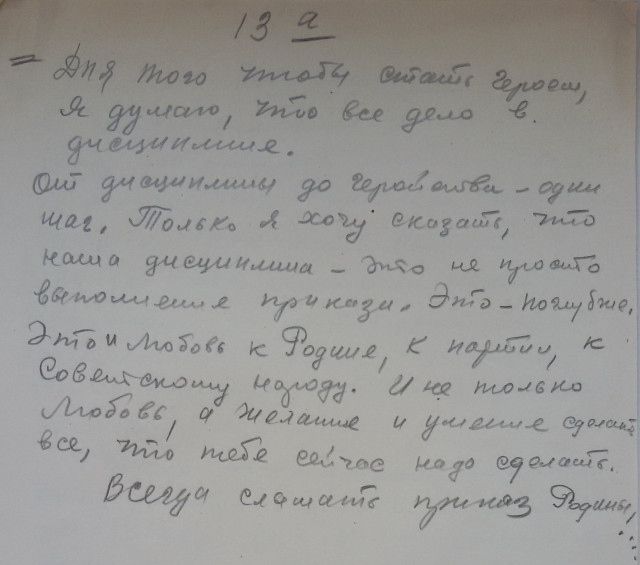 13 а
= Для того чтобы стать героем,
Я думаю, что все дело в
дисциплине.
От дисциплины до геройства – один
шаг. Только я хочу сказать, что
наша дисциплина – это не просто
выполнение приказа. Это – поглубже.
Это и любовь к Родине, к партии, к
Советскому народу. И не только
любовь, а желание и умение сделать
все, что тебе сейчас надо сделать.
Всегда слышать приказ Родины,
....